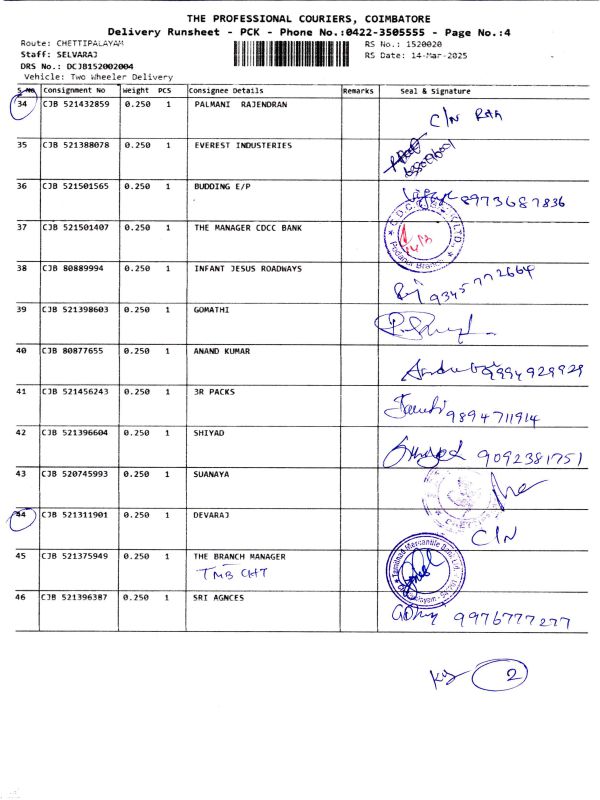 THE PROFESSIONAL COURIERS, COIMBATORE
Delivery Runsheet - PCK - Phone No.:0422-3505555 - Page No.:4
Route: CHETTIPALAYAM
RS No.: 1520020
Staff: SELVARAJ
RS Date: 14-Mar-2025
DRS No.: DCJB152002004
Vehicle: Two Wheeler Delivery
S.No Consignment No Weight PCS Consignee Details Remarks Seal & Signature
34 CJB 521432859 0.250 1 PALMANI RAJENDRAN C/N
35 CJB 521388078 0.250 1 EVEREST INDUSTERIES
36 CJB 521501565 0.250 1 BUDDING E/P 8973687836
37 CJB 521501407 0.250 1 THE MANAGER CDCC BANK
38 CJB 80889994 0.250 1 INFANT JESUS ROADWAYS 9345772664
39 CJB 521398603 0.250 1 GOMATHI
40 CJB 80877655 0.250 1 ANAND KUMAR 9994929929
41 CJB 521456243 0.250 1 3R PACKS 9894711914
42 CJB 521396604 0.250 1 SHIYAD 9092381751
43 CJB 520745993 0.250 1 SUANAYA
44 CJB 521311901 0.250 1 DEVARAJ C/N
45 CJB 521375949 0.250 1 THE BRANCH MANAGER
TMB CHT
Tamilnad Mercantile Bank Ltd.
46 CJB 521396387 0.250 1 SRI AGNCES 9976777277
2